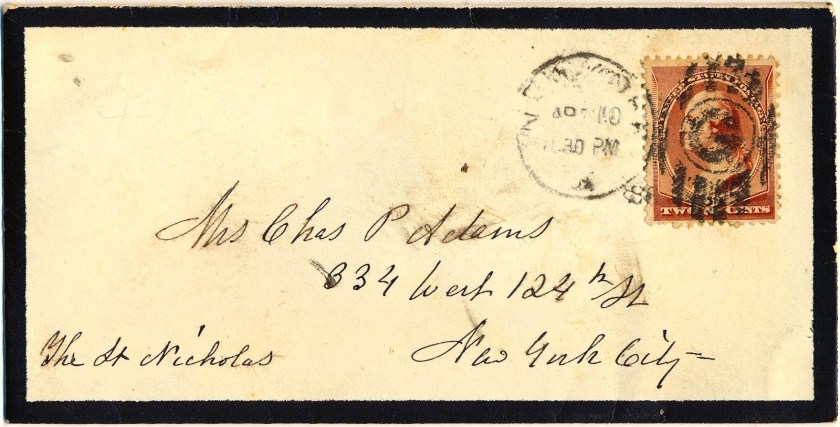 NEW YORK
APR 10
30 PM
UNITED STATES POSTAGE
G
TWO CENTS
Mrs Chas P Adams
334 West 124th St
The St Nicholas
New York City